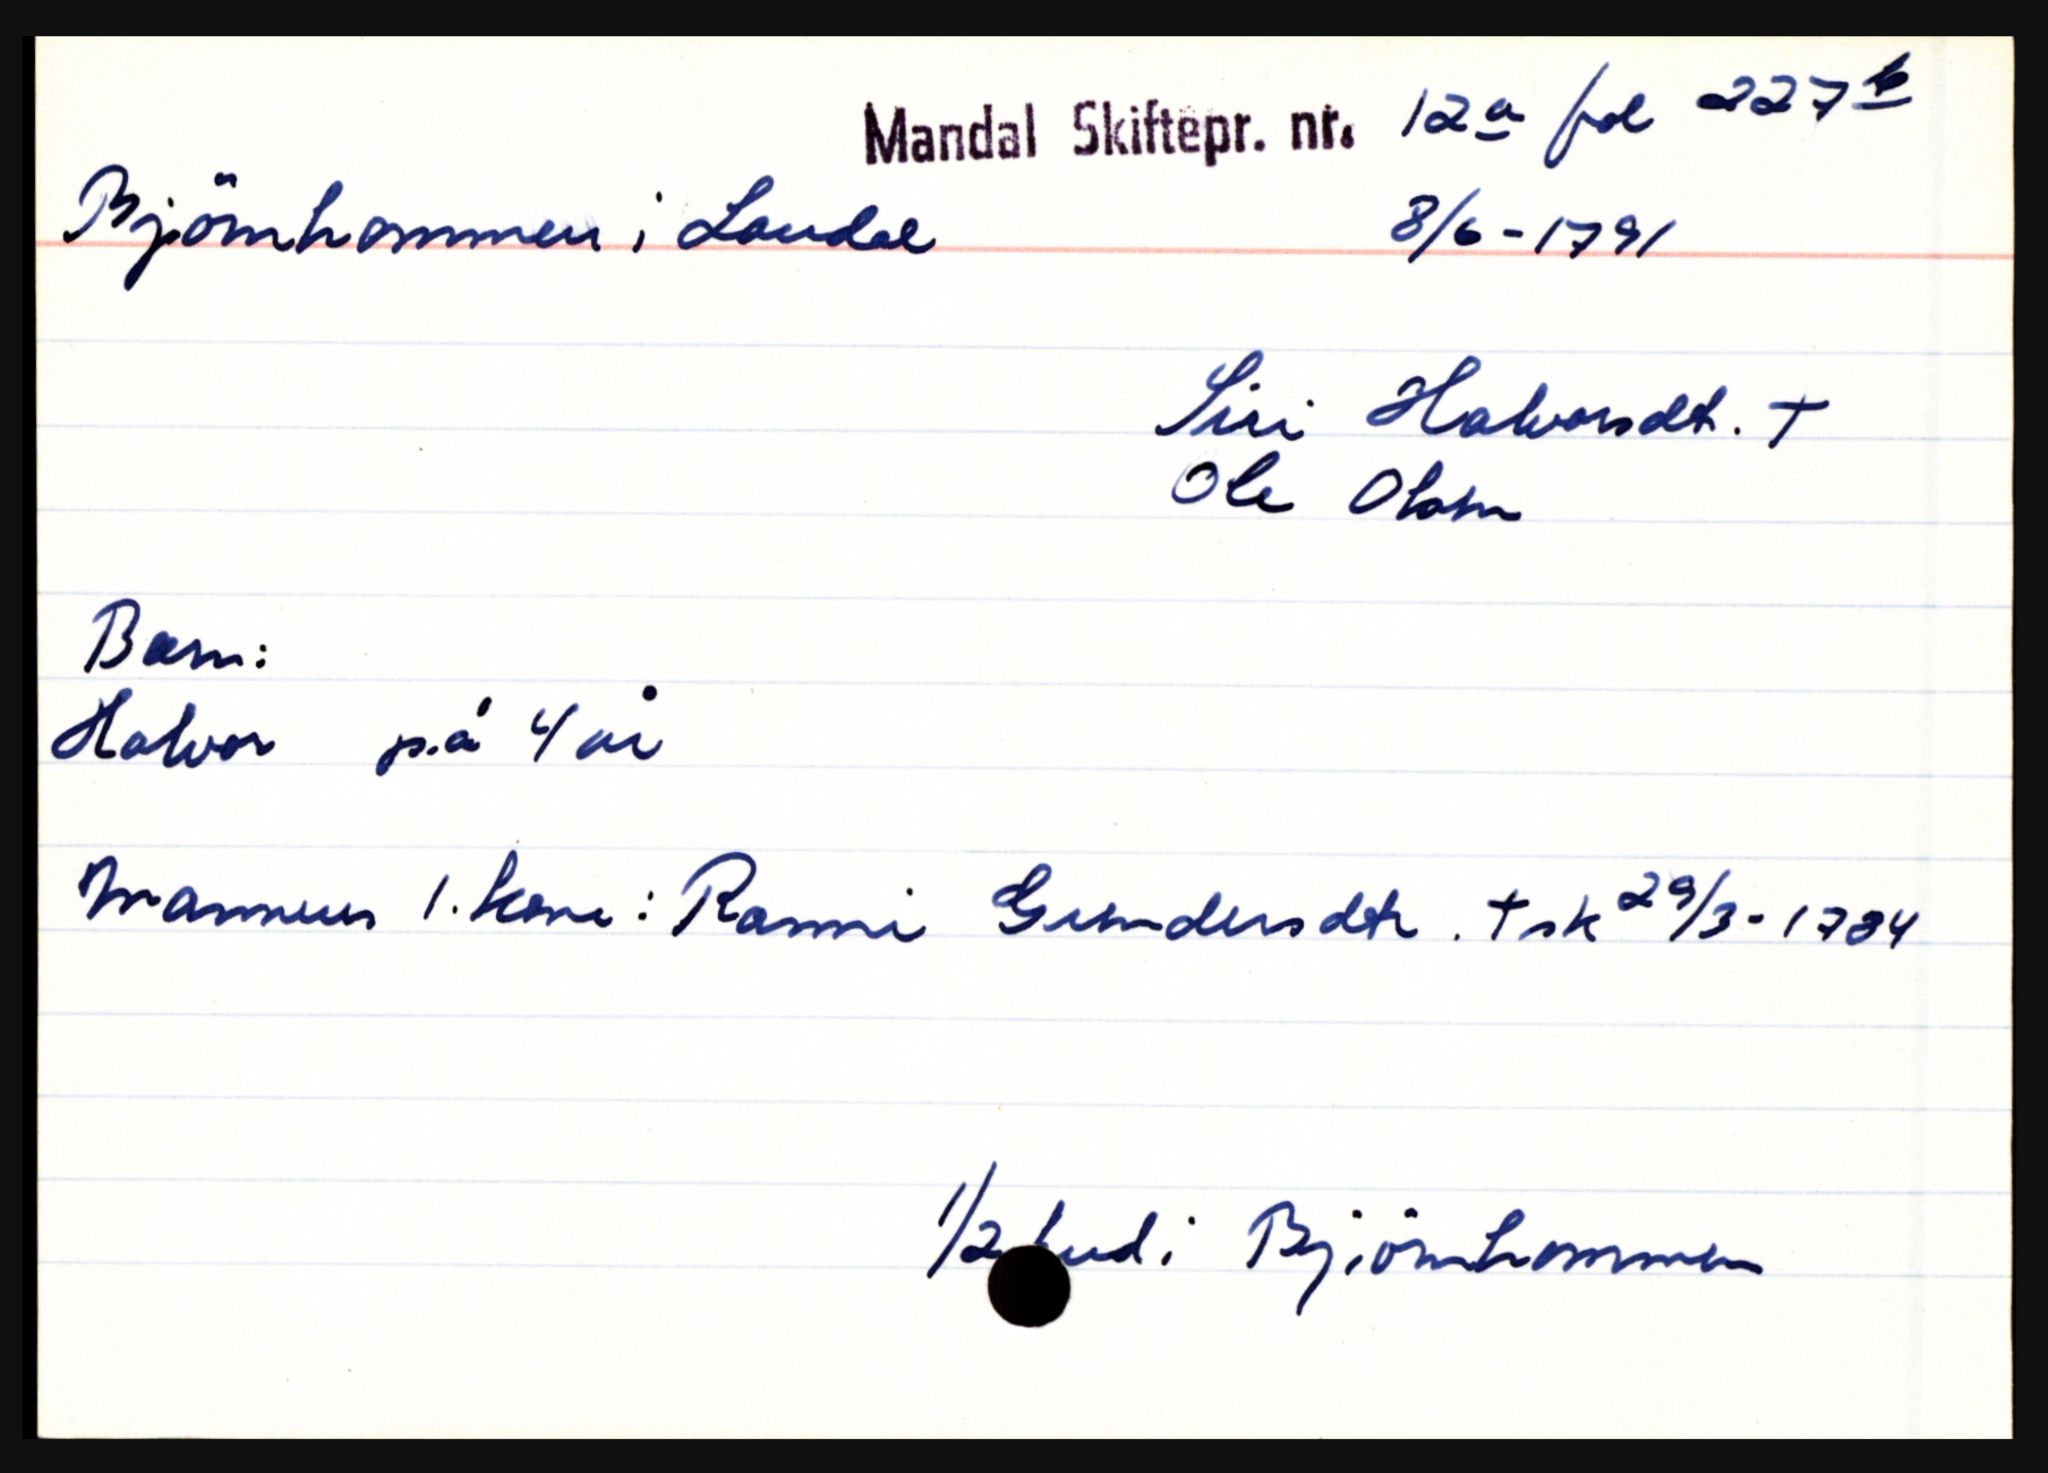 Mandal Skiftepr. nr. 12a fol 227b
Björnhommen i Laudal 8/6-1791
Siri Halvorsdt. †
Ole Olsen
Barn:
Halvor på 4 år
Mannens 1. kone: Ranni Gundersdtr. † sk 29/3-1784
1/2 hud i Björnhommen